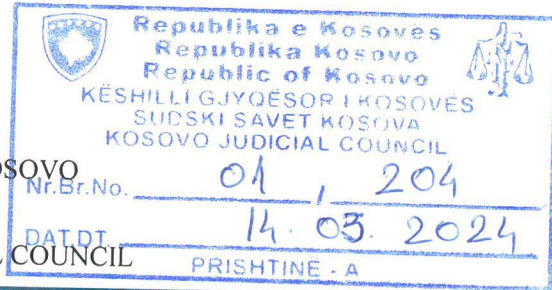 Republika e Kosovës
Republika Kosovo
Republic of Kosovo
KËSHILLI GJYQËSOR I KOSOVËS
SUDSKI SAVET KOSOVA
KOSOVO JUDICIAL COUNCIL
OSOVO
Nr.Br.No. 01, 204
DAT.DT. 14. 03. 2024
COUNCIL
PRISHTINË - A